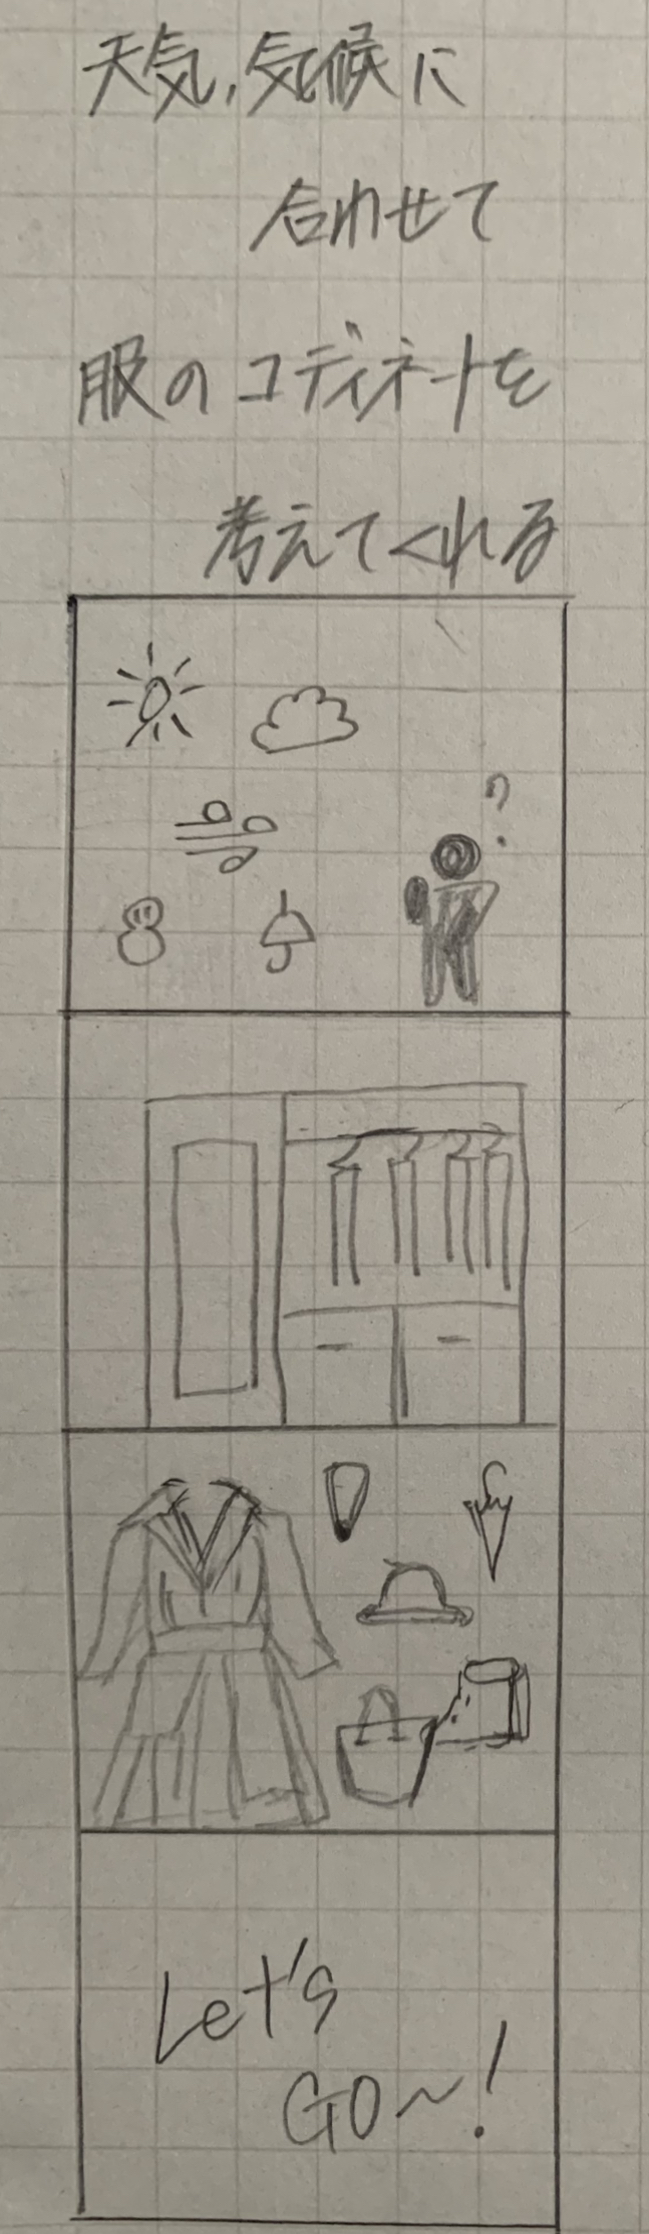 天気,気候に
合わせて
服のコディネートを
考えてくれる
?
Let's
GO~!